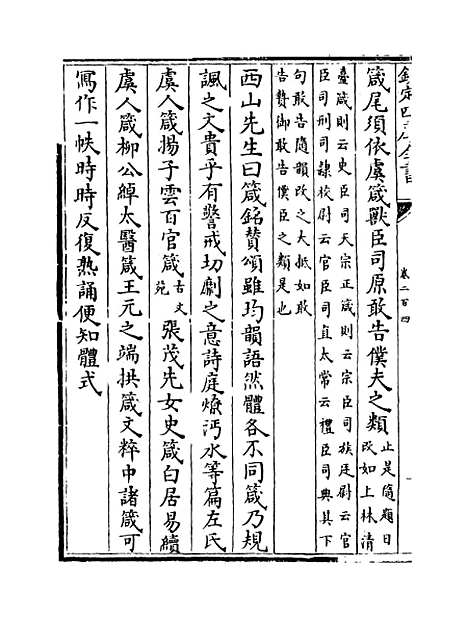 欽定四庫全書
卷二百四
箴尾須依虞箴獸臣司原敢告僕夫之類
止是隨題目
改如上林清
臺箴則云史臣司天宗正箴則云宗臣司族廷尉云官
臣司刑司隸校尉云官臣司直太常云禮臣司典其下
句敢告隨韻改之大抵如敢
告贊御敢告僕臣之類是也
西山先生曰箴銘贊頌雖均韻語然體各不同箴乃規
諷之文貴乎有警戒切劘之意詩庭燎沔水等篇左氏
虞人箴揚子雲百官箴
古文
苑
張茂先女史箴白居易續
虞人箴柳公綽太醫箴王元之端拱箴文粹中諸箴可
寫作一帙時時反復熟誦便知體式